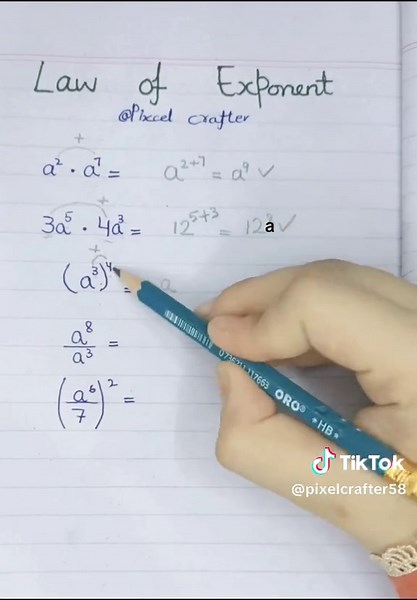 Law of Exponent
@Pixcel crafter
a² · a⁷ = a²⁺⁷ = a⁹ ✓
+
3a⁵ · 4a³ = 12⁵⁺³ = 12a ✓
+
(a³)⁴ = a
+
a⁸/a³ =
(a⁶/7)² =
0 736711 117663 ORO® *HB*
TikTok
@pixelcrafter58